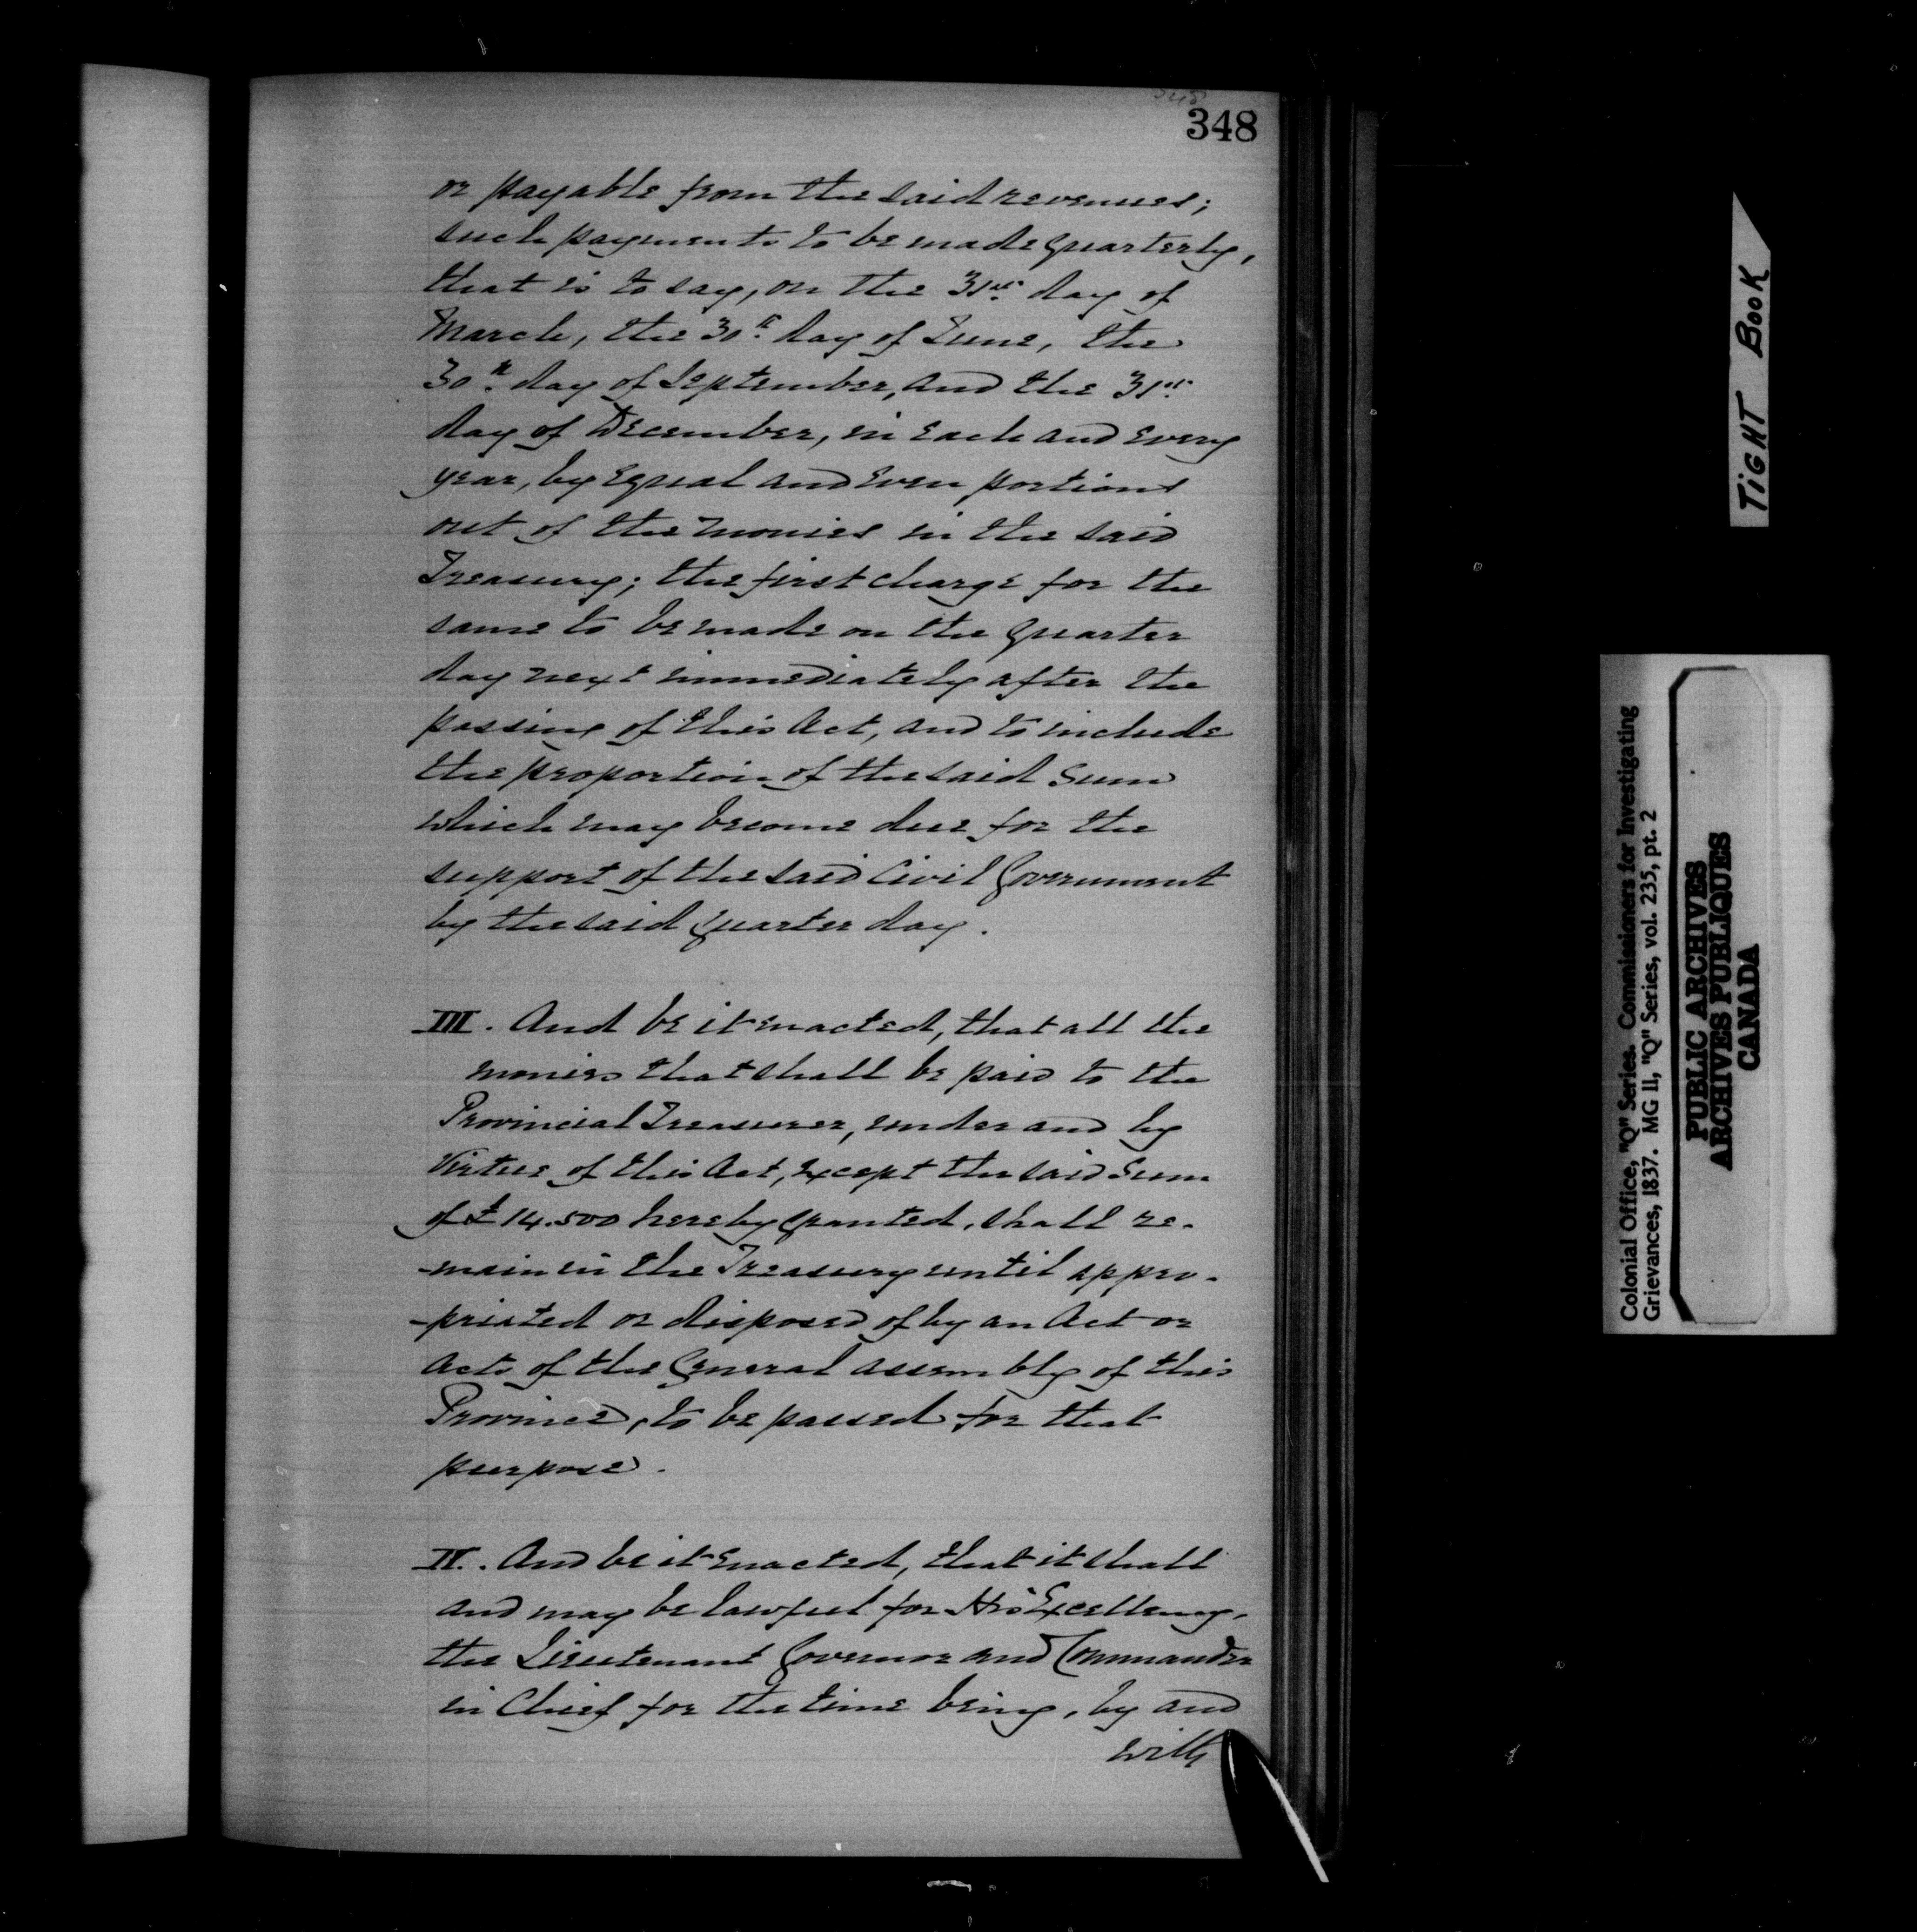 348
348
or payable from the said revenues;
such payments to be made quarterly,
that is to say, on the 31st day of
March, the 30th day of June, the
30th day of September, and the 31st
day of December, in each and every
year, by equal and even portions
out of the monies in the said
Treasury; the first charge for the
same to be made on the quarter
day next immediately after the
passing of this Act, and to include
the proportion of the said Sum
which may become due for the
support of the said Civil Government
by the said quarter day.
III. And be it enacted, that all the
monies that shall be paid to the
Provincial Treasurer, under and by
Virtue of this Act, except the said Sum
of £14.500 hereby granted, shall re-
-main in the Treasury until appro-
-priated or disposed of by an Act or
Acts of the General Assembly of this
Province, to be passed for that
purpose.
IV. And be it enacted, that it shall
and may be lawful for His Excellency,
the Lieutenant Governor and Commander
in Chief for the time being, by and
with
TIGHT BOOK
Colonial Office, "Q" Series. Commissioners for Investigating
Grievances, 1837. MG 11, "Q" Series, vol. 235, pt. 2
PUBLIC ARCHIVES
ARCHIVES PUBLIQUES
CANADA